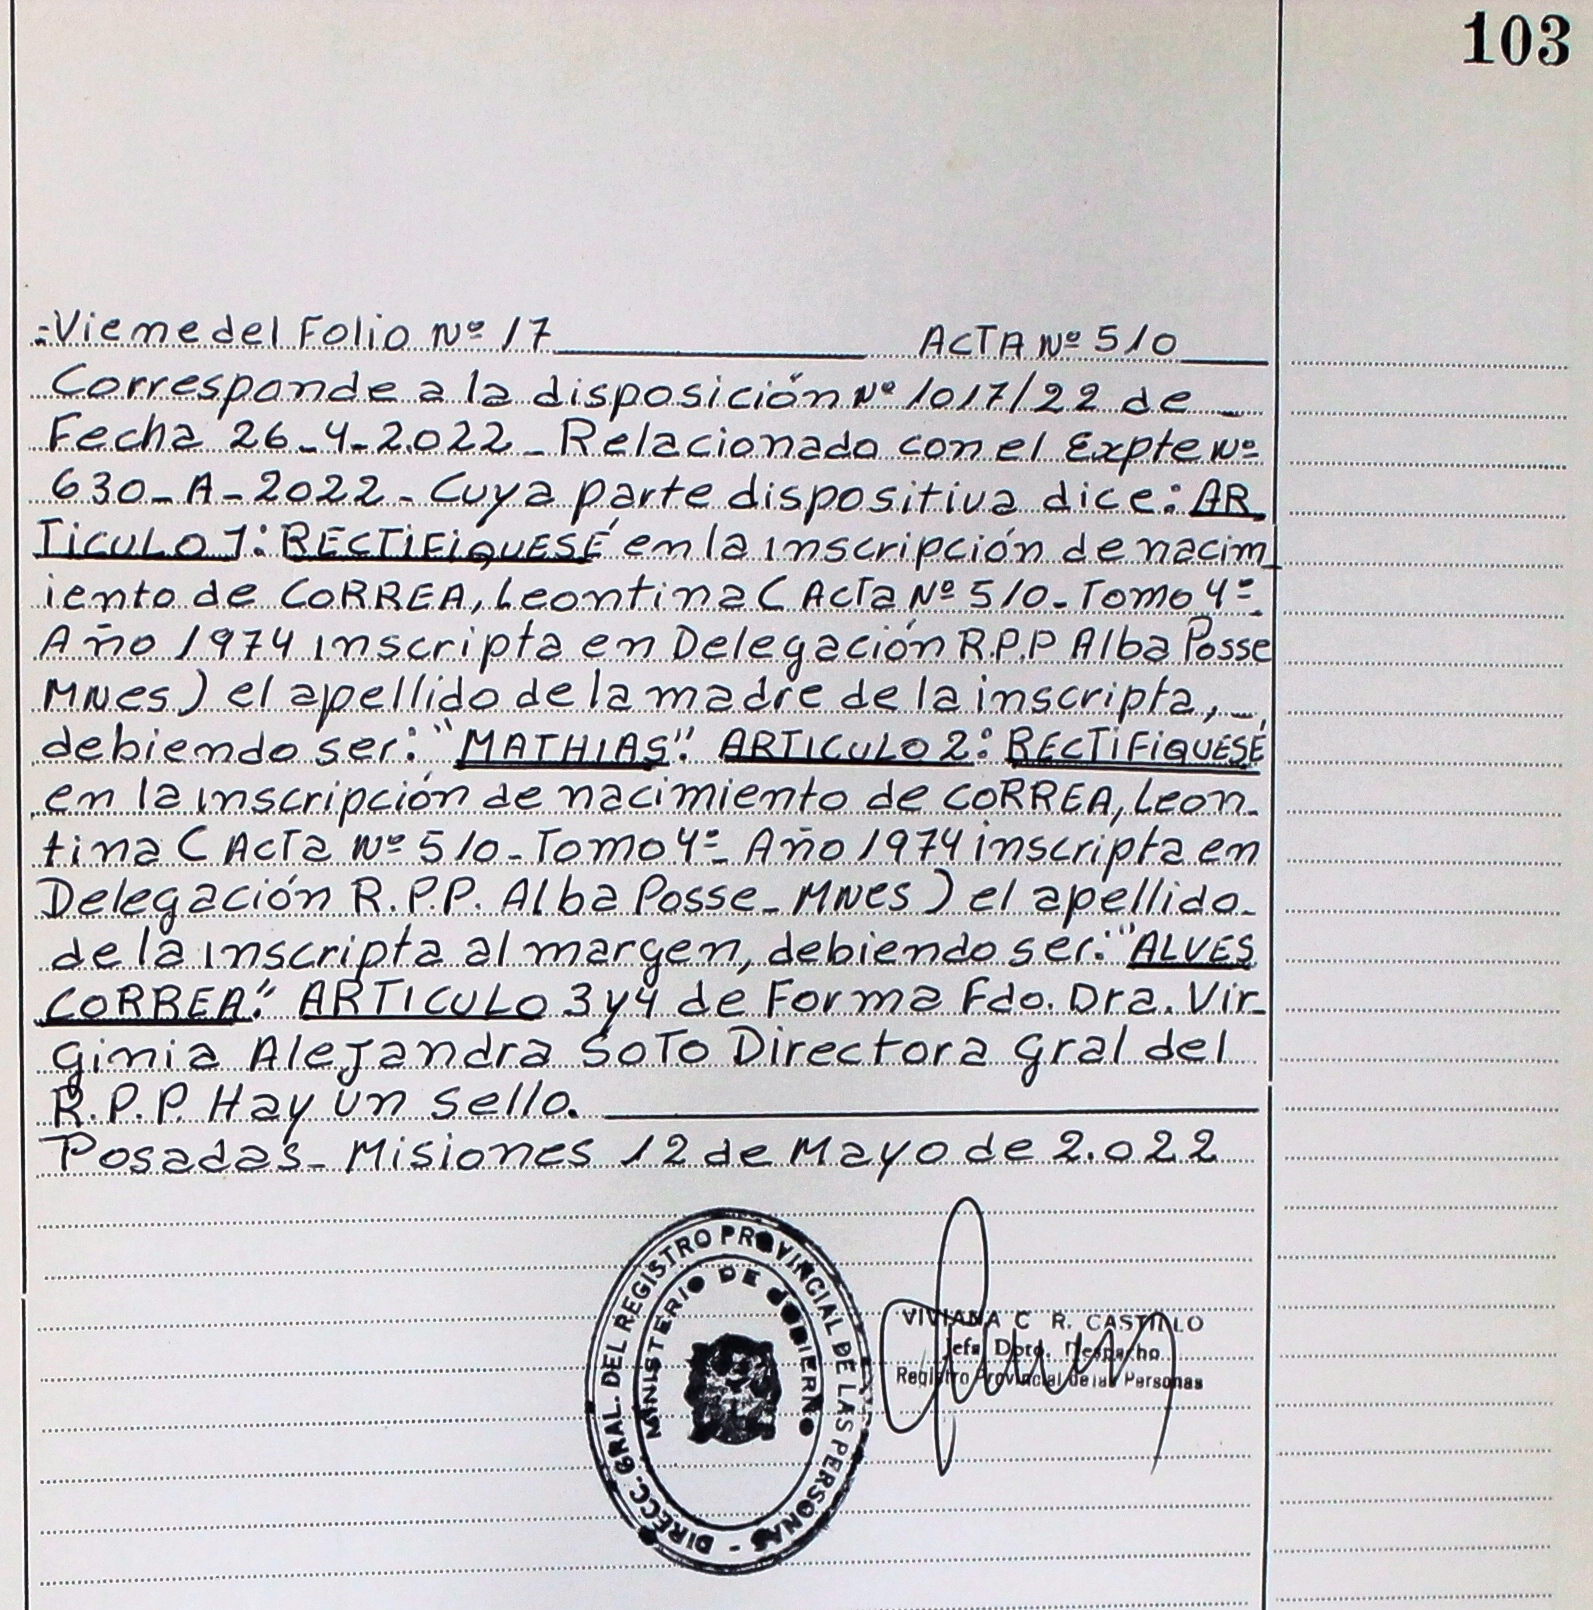 103
=Viene del Folio Nº 17 ACTA Nº 510
Corresponde a la disposición Nº 1017/22 de _
Fecha 26-4-2.022 - Relacionado con el Expte Nº
630-A-2022 - Cuya parte dispositiva dice: AR
TICULO 1: RECTIFIQUESÉ en la inscripción de nacim_
iento de CORREA, Leontina ( Acta Nº 510 - Tomo 4º -
Año 1974 inscripta en Delegación R.P.P Alba Posse
MNES ) el apellido de la madre de la inscripta, _
debiendo ser: "MATHIAS". ARTICULO 2: RECTIFIQUESÉ
en la inscripción de nacimiento de CORREA, Leon-
tina ( Acta Nº 510 - Tomo 4º - Año 1974 inscripta en
Delegación R.P.P. Alba Posse - MNES ) el apellido -
de la inscripta al margen, debiendo ser: "ALVES
CORREA". ARTICULO 3 y 4 de Forma Fdo. Dra. Vir-
ginia Alejandra SOTO Directora Gral del
R.P.P. Hay un sello.
Posadas - Misiones 12 de Mayo de 2.022
DIRECC. GRAL. DEL REGISTRO PROVINCIAL DE LAS PERSONAS -
MINISTERIO DE GOBIERNO
VIVIANA C R. CASTILLO
Jefa Dpto. Despacho
Registro Provincial de las Personas